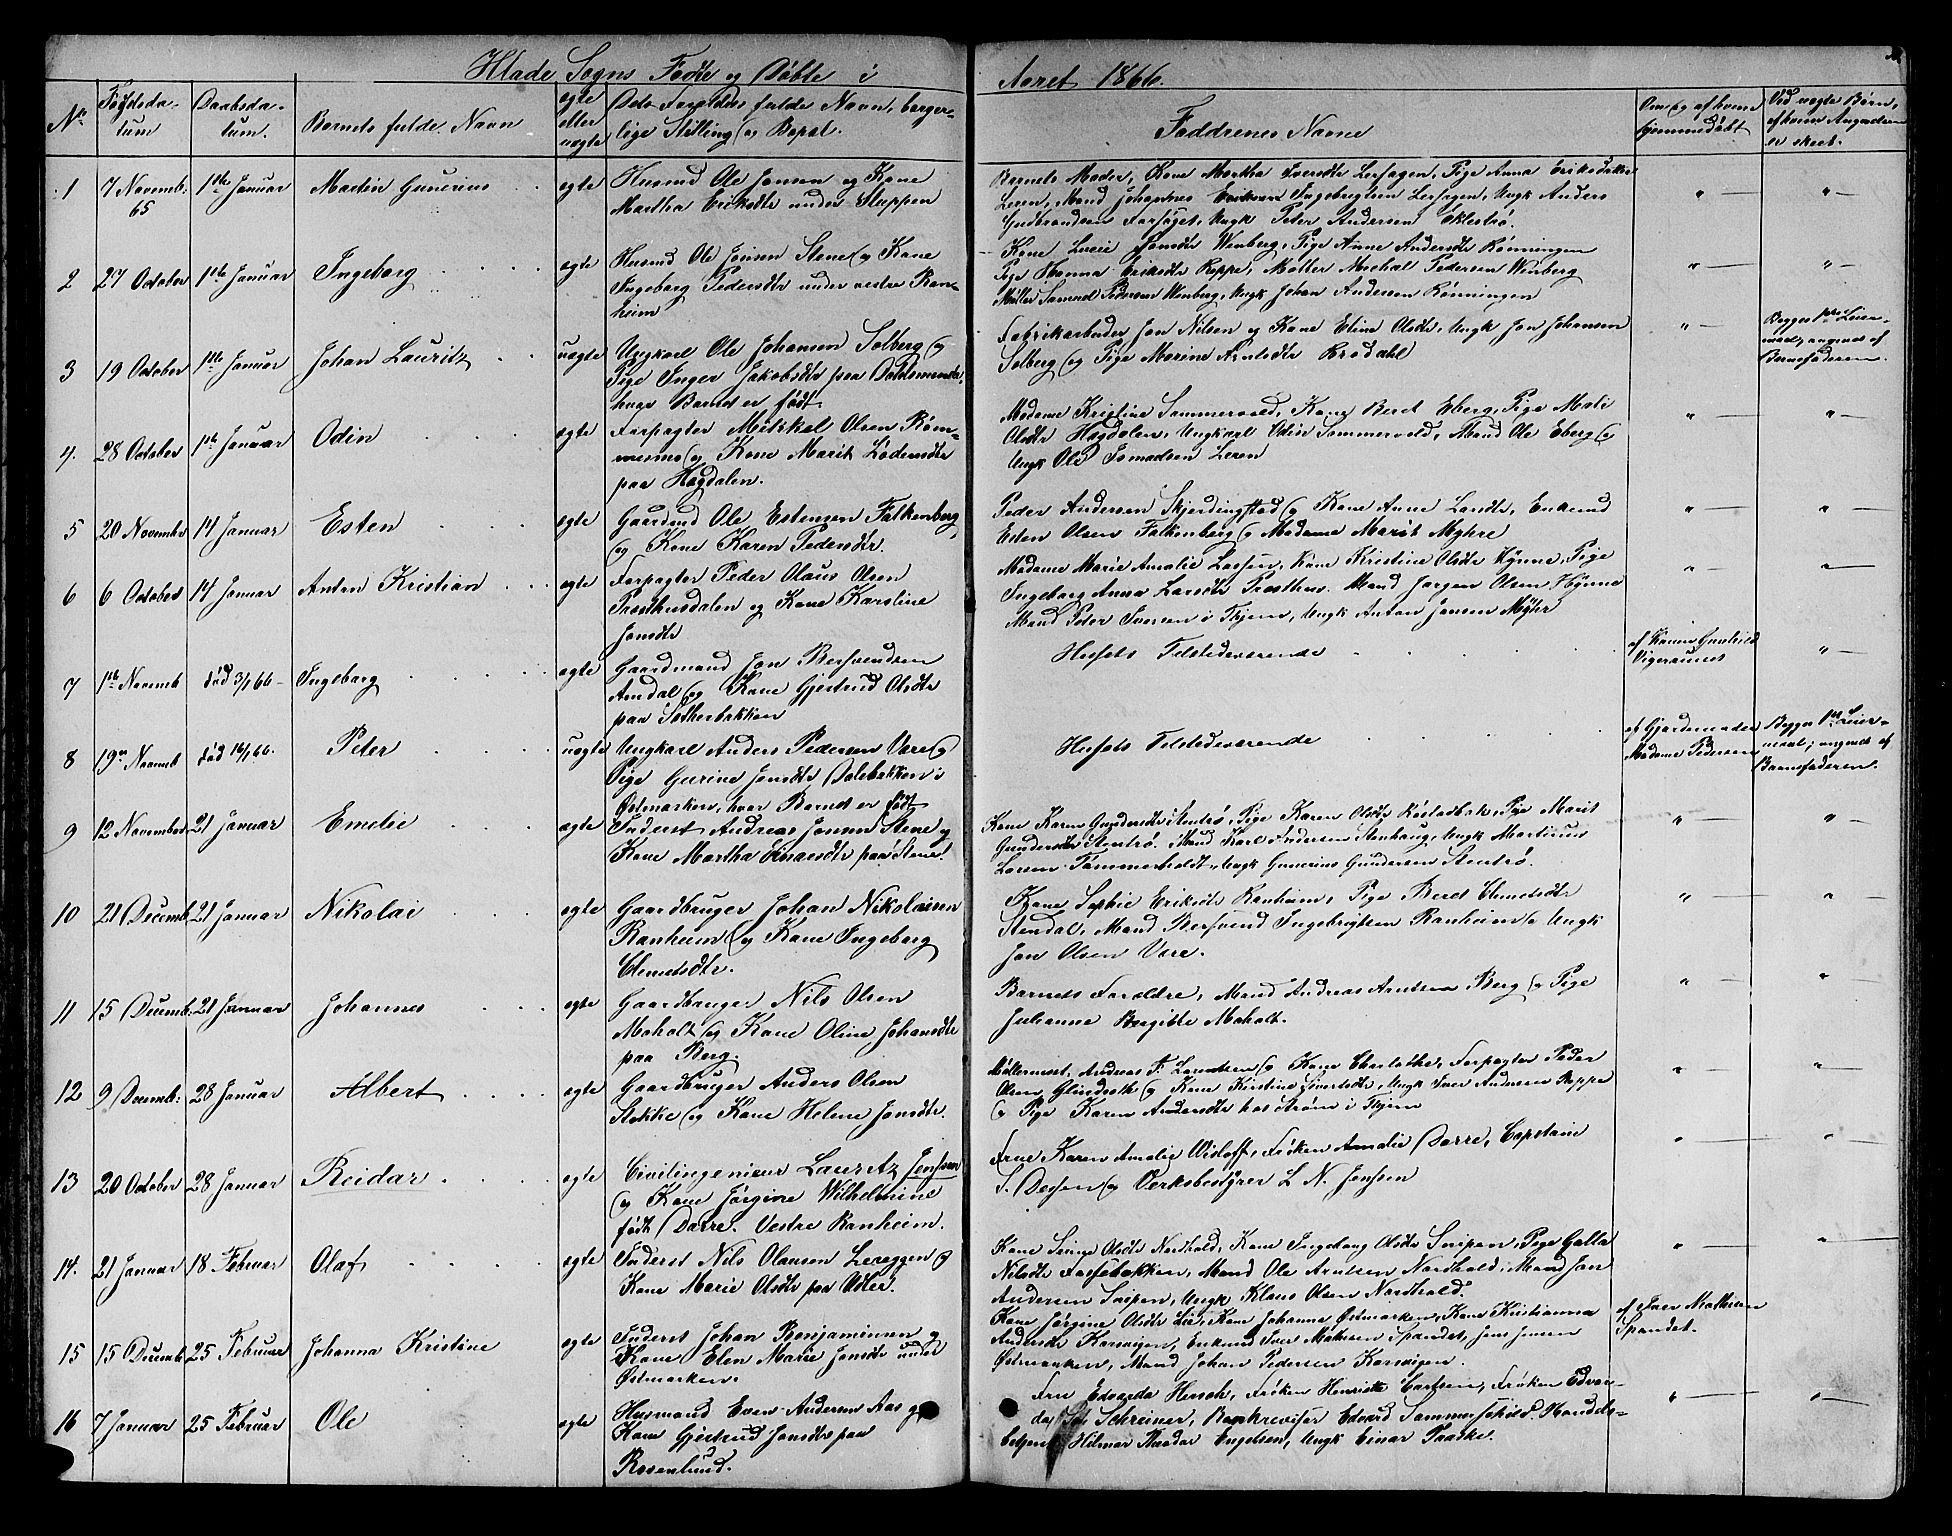 Hlade Sogns Fødte og Døbte i Aaret 1866.
No
Fødselsdatum
Daabsdatum.
Barnets fulde Navn
egte eller uegte
Dets Forældres fulde Navn, borgerlige Stilling og Bopæl.
Faddrenes Navne
Om og af hvem hjemmedøbt
Ved uegte Børn, af hvem Angivelsen er skeet.
1 7 Novemb: 65 1ste Januar Martin Gunerius egte Husmd Ole Jonsen og Kone
Martha Eriksdtr under Sluppen
Barnets Moder, Kone Martha Iversdtr Lerhagen, Pige Anna Eriksdatter
Leren, Mand Johannes Ingebrigtsen Lerhagen, Ungk Anders
Gulbrandsen, Ungk Peter Andersen
2 27 October 1ste Januar Ingeborg egte Husmd Ole Jonsen Stene og Kone
Ingeborg Pedersdtr under vestre Ranheim
Kone Lucie Jonsdtr Wenberg, Pige Anne Andersdtr Rønningen
Pige Hanna Eriksdtr Reppe, Møller Michal Pedersen Winberg
Møller Samuel Pedersen Wenberg, Ungk Johan Andersen Rønningen
3 19 October 1ste Januar Johan Lauritz uegte Ungkarl Ole Johansen Solberg og
Pige Inger Jakobsdtr paa
hvor Barnet er født.
Fabrikarbeider Jon Nilsen og Kone Eline Olsdtr, Ungk Jon Johansen
Solberg og Pige Marine Arntsdtr Brødahl
Begges 1ste Leiermaal; angivet af Barnefaderen.
4. 28 October 1ste Januar Odin egte Forpagter Mikkal Olsen
og Kone Marit
paa Hagdalen.
Madame Kristine Sommervold, Kone Beret Eberg, Pige Mali
Olsdtr Hagdalen, Ungkarl Odin Sommervold, Mand Ole Eberg og
Ungk Ole Leren
5 20 November 14 Januar Esten egte Gaardmd Ole Estensen Falkenberg
og Kone Karen Pedersdtr.
Peder Andersen Skjerdingstad og Kone Anne Enkemd
Esten Olsen Falkenberg og Madame Marit Myhre
6 6 October 14 Januar Anton Kristian egte Forpagter Peder Olaus Olsen
Presthusdalen og Kone Karoline
Jonsdtr
Madame Marie Amalie Kone Kristine Olsdtr Hynne, Pige
Ingeborg Anna Larsdtr Presthus. Mand Jørgen Olsen Hynne
Mand Peter Iversen i Thjem, Ungk Anton Jensen
7 1ste Novemb død 3/1 66 Ingeborg egte Gaardmand Jon Bersvendsen
Amdal og Kone Gjertrud Olsdtr
paa
Husets Tilstedeværende
af Konen Gunhild
8 19de Novemb død 16/1 66. Peter uegte Ungkarl Anders Pedersen Være og
Pige Gurine Jonsdtr Dalebakken i
Østmarken, hvor Barnet er født
Husets Tilstedeværende
af Gjordemoder Madame Pedersen
Begges 1ste Leiermaal; angivet af Barnefaderen.
9 12 November 21 Januar Emilie egte Inderst Andreas Jonsen Stene og
Kone Martha paa Stene.
Kone Karen Gundersdtr Stentrø, Pige Karen Olsdtr Pige Marit
Gundersdtr Stentrø. Mand Karl Andersen Stenhaug, Ungk Martinus
Larsen Tømmerholdt, Ungk Gunerius Gundersen Stentrø.
10 21 Decemb. 21 Januar Nikolai egte Gaardbruger Johan Nikolaisen
Ranheim og Kone Ingeborg
Clemetsdtr.
Kone Sophie Eriksdtr Ranheim, Pige Beret Clemetsdtr
Stendal, Mand Bersvend Ingebrigtsen Ranheim og Ungk
Jon Olsen Være.
11 15 Decemb: 21 Januar Johannes egte Gaardbruger Nils Olsen
Moholt og Kone Oline Johansdtr
paa Berg.
Barnets Forældre, Mand Andreas Arntsen Berg og Pige
Julianne Bergitte Moholt.
12 9 Decemb: 28 Januar Albert egte Gaardbruger Anders Olsen
Stokke og Kone Helene Jonsdtr.
Møllermest. Andreas F. og Kone Forpagter Peder
Olsen og Kone Kristine Ungk Iver Andersen Reppe
og Pige Karen Andersdtr hos Strøm i Thjem
13 20 October 28 Januar Reidar egte Civilingenieur Lauritz Jenssen
og Kone Jørgine Wilhelmine
født Darre. Vestre Ranheim.
Frue Karen Amalie Frøken Amalie Darre, Captain
S. og Verksbestyrer L N. Jenssen
14. 21 Januar 18 Februar Olaf egte Inderst Nils Olausen og
Kone Marie Olsdtr paa
Kone Olsdtr Nardhold, Kone Ingeborg Olsdtr Pige
Nilsdtr Forsetbakken, Mand Ole Arntsen Nardhold, Mand Jon
Andersen Ungk Klaus Olsen Nardhold.
15 15 Decemb 25 Februar Johanna Kristine egte Inderst Johan Benjaminsen og
Kone Elen Marie Jonsdtr under
Østmarken.
Kone Jørgine Olsdtr Lie, Kone Johanna Østmarken, Kone Kristianna
Andersdtr Korsvigen, Enkemd Iver Mathisen Spandet, Jens Jensen
Østmarken, Mand Johan Pedersen Korsvigen.
af Iver Mathisen Spandet.
16 7 Januar 25 Februar Ole egte Husmand Even Andersen Aas og
Kone Gjertrud Jonsdtr paa
Rosenlund.
Fru Edvarda Hirsch, Frøken Henriette Carlsen, Frøken Edvarda
Schreiner, Bankreviser Edvard Sommerschield. Handelsbetjent
Hilmar Engelsen, Ungk Einar Paaske.